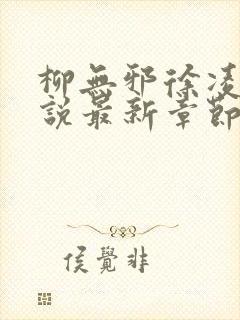 柳無邪徐凌
說最新章節
侯覺非